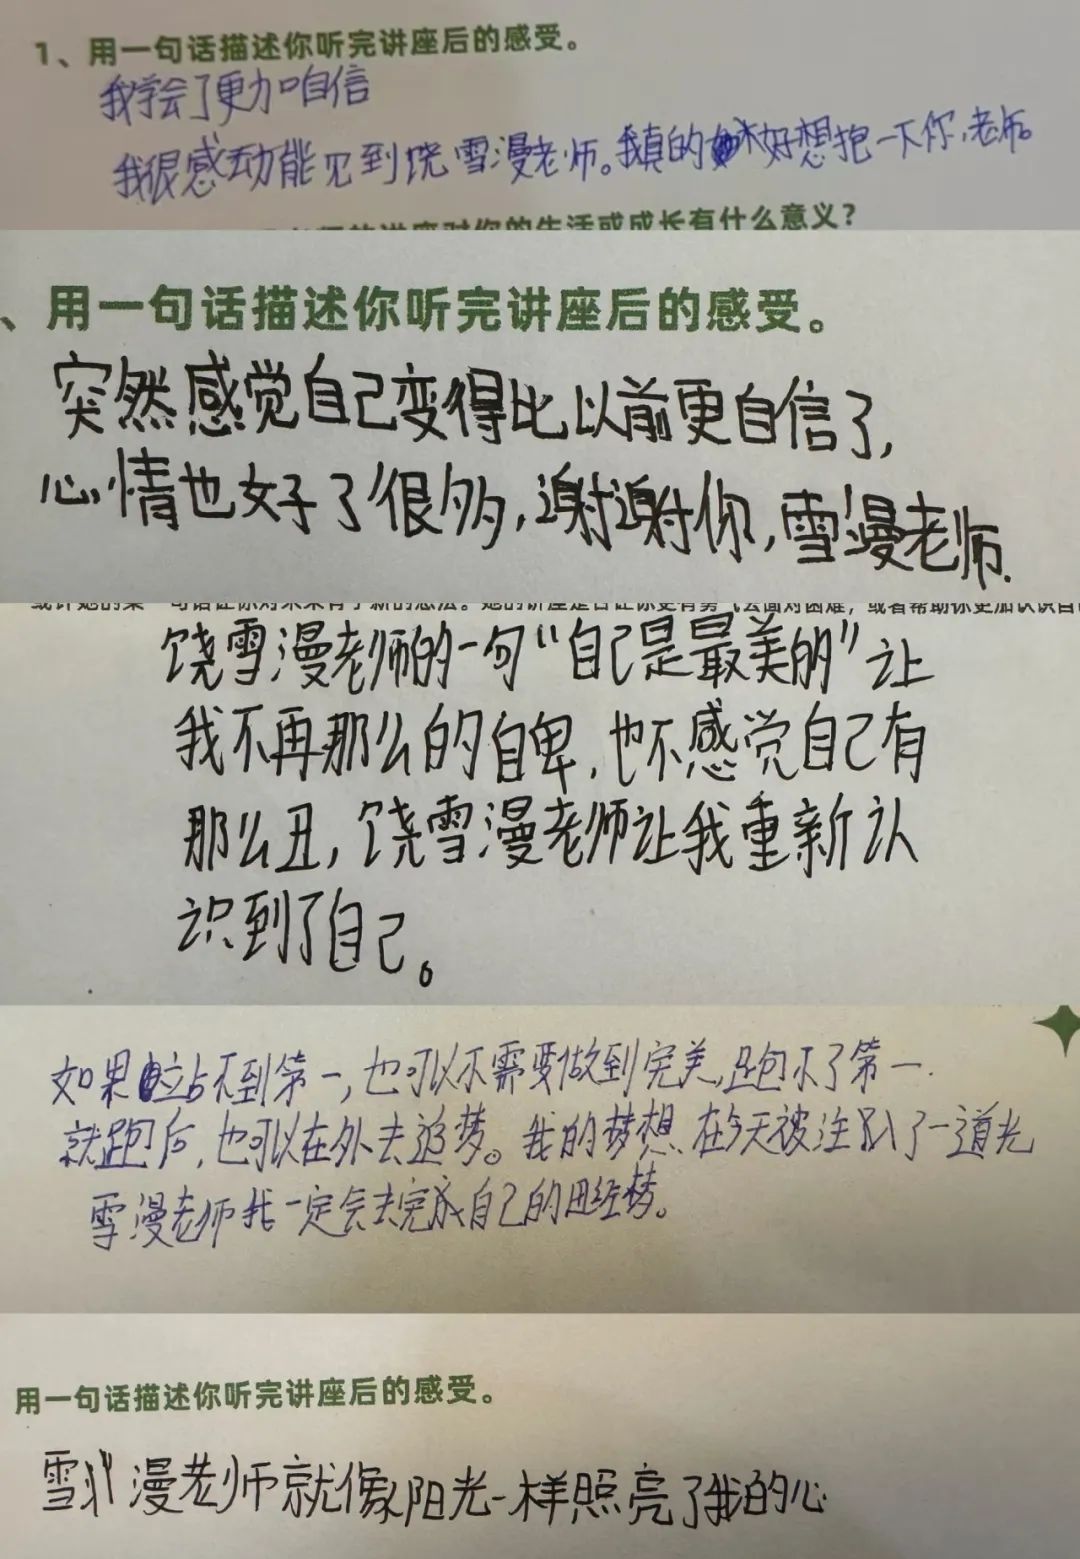 1、用一句话描述你听完讲座后的感受。
我学会了更加自信
我很感动能见到饶雪漫老师。我真的好想抱一下你,老师。
讲座对你的生活或成长有什么意义？
、用一句话描述你听完讲座后的感受。
突然感觉自己变得比以前更自信了,
心情也好了很多,谢谢你,雪漫老师.
句话让你对未来有了新的想法。她的讲座是否让你更有勇气去面对困难，或者帮助你更加认识自己
饶雪漫老师的一句“自己是最美的”让
我不再那么的自卑,也不感觉自己有
那么丑,饶雪漫老师让我重新认
识到了自己。
如果站不到第一,也可以不需要做到完美,跑不了第一.
就跑后,也可以在外去追梦。我的梦想在今天被注入了一道光
雪漫老师我一定会去完成自己的梦。
用一句话描述你听完讲座后的感受。
雪漫老师就像阳光一样照亮了我的心